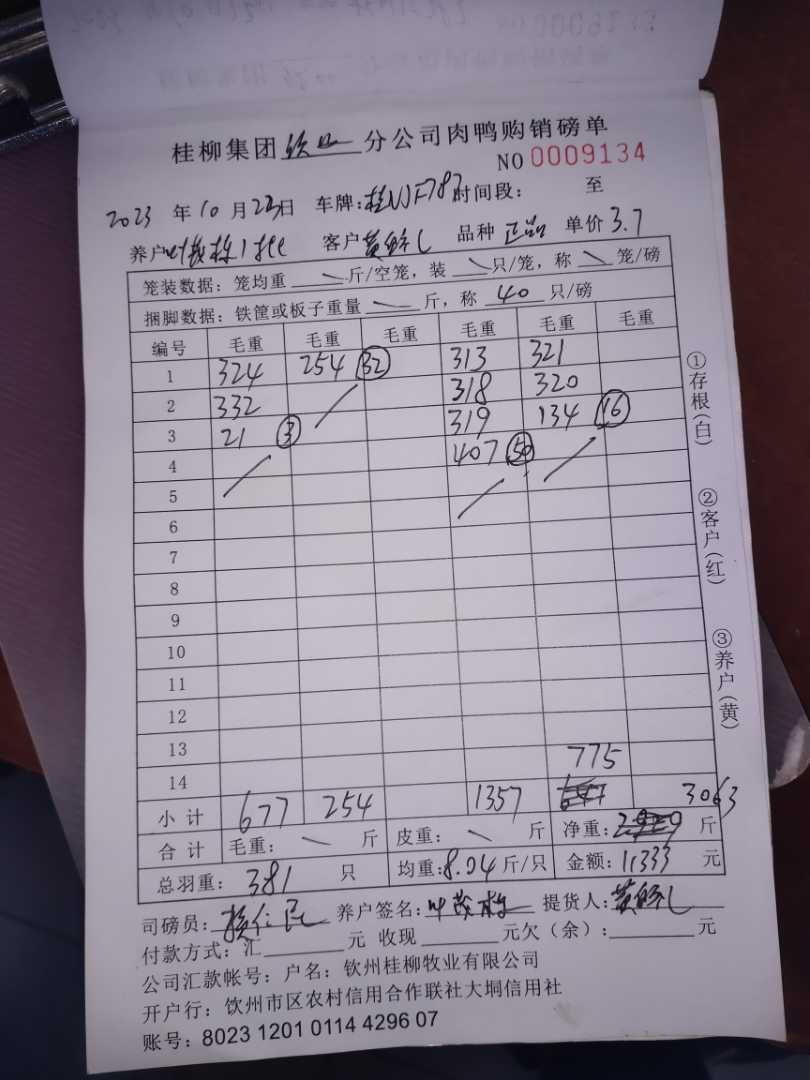 桂柳集团 钦州 分公司肉鸭购销磅单
NO 0009134
2023 年 10 月 23日 车牌: 桂NF787 时间段: 至
养户 叶茂栋 1批 客户 品种 正品 单价 3.7
笼装数据: 笼均重 斤/空笼, 装 只/笼, 称 笼/磅
捆脚数据: 铁筐或板子重量 斤, 称 40 只/磅
编号 毛重 毛重 毛重 毛重 毛重 毛重
1 324 254 32 313 321
2 332 318 320
3 21 3 319 134 16
4 407 50
5
6
7
8
9
10
11
12
13 775
14
小计 677 254 1357 3063
合计 毛重: 斤 皮重: 斤 净重: 斤
总羽重: 381 只 均重: 8.04 斤/只 金额: 11333 元
司磅员: 养户签名: 叶茂栋 提货人:
付款方式: 汇 元 收现 元欠(余): 元
公司汇款帐号: 户名: 钦州桂柳牧业有限公司
开户行: 钦州市区农村信用合作联社大垌信用社
账号: 8023 1201 0114 4296 07
①存根(白)
②客户(红)
③养户(黄)